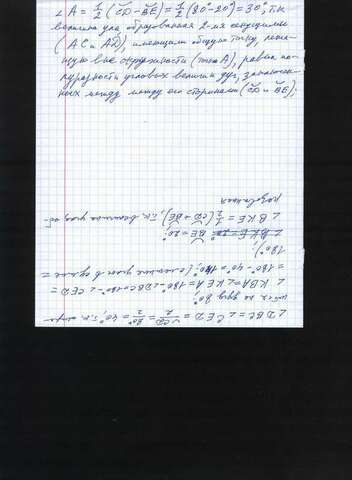 ∠A = 1/2 (C͝D − B͝E) = 1/2 (80° − 20°) = 30°, т.к
величина угла образованная 2-мя секущими
(AC и AD), имеющими общую точку, лежа-
щую вне окружности (точка A), равна по-
луразности угловых величин дуг, заключен-
ных между между его сторонами (C͝D и B͝E).
∠DBC = ∠CED = C͝D/2 = 80°/2 = 40°, т.к.
на дугу 80°;
∠KBA = ∠KEA = 180° − ∠DBC = 180° − ∠CED =
= 180° − 40° = 140°; (смежные углы в сумме =
180°);
∠BKE = B͝E = 20°
∠BKE = 1/2 (C͝D + B͝E), т.к. величина угла, об-
разованная